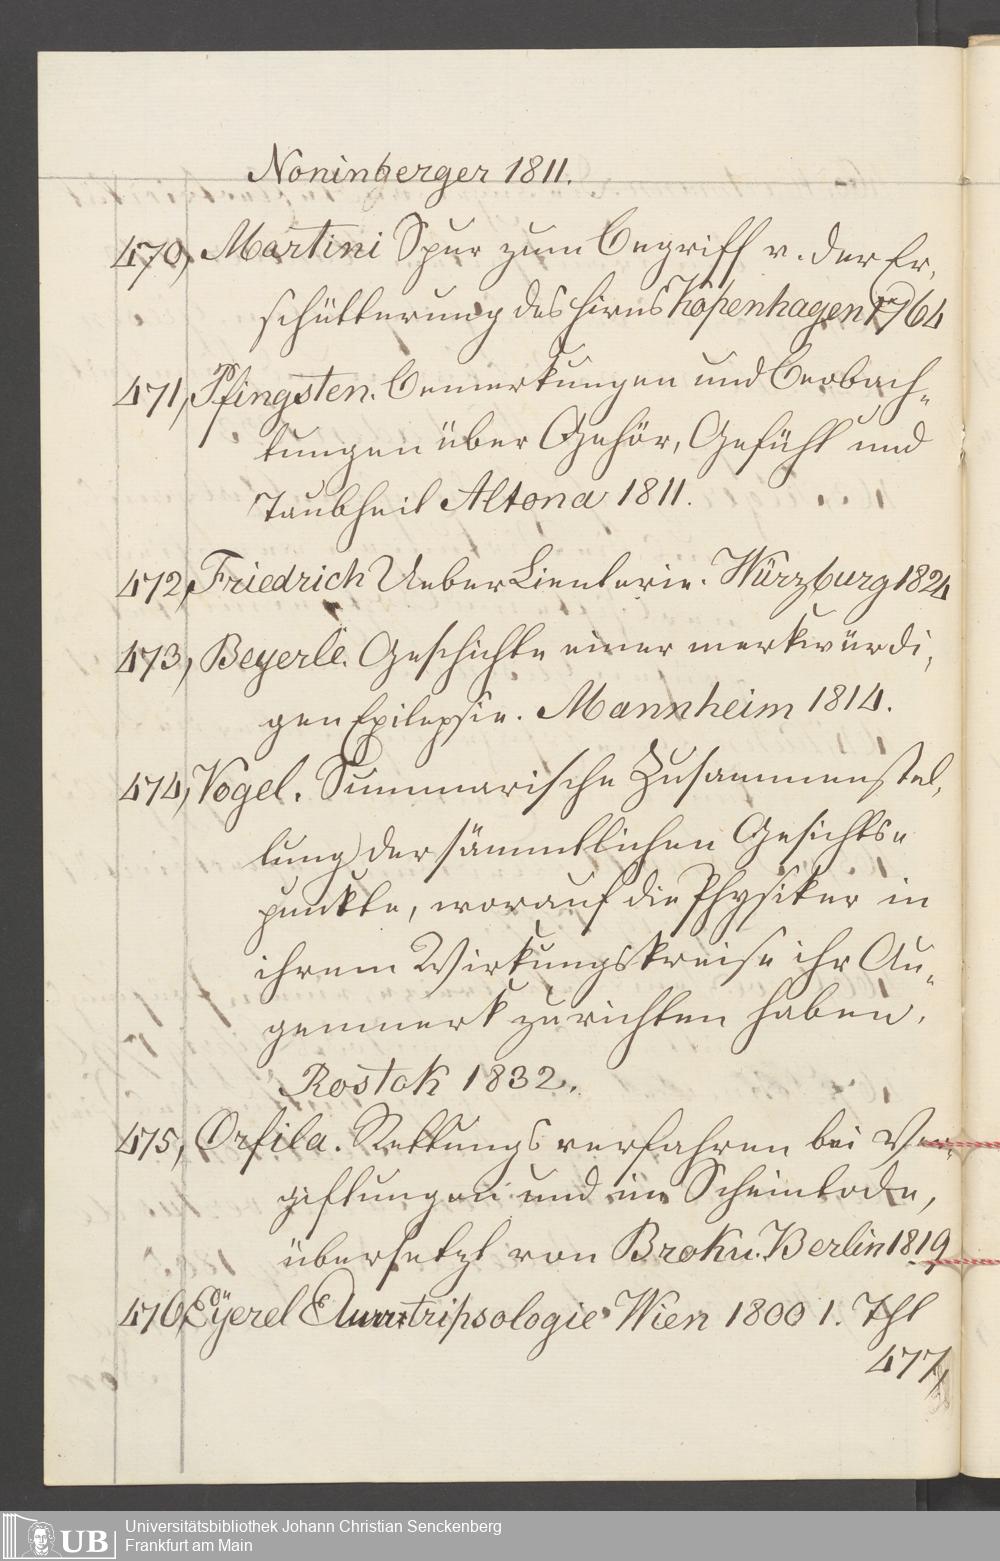 Noninberger 1811.
470, Martini Spur zum Begriff v. der Er,
schütterung des Hirns Kopenhagen 1764
471, Pfingsten. Bemerkungen und Beobach-
tungen über Gehör, Gefühl und
Taubheit Altona 1811.
472, Friedrich Ueber Lienterie. Würzburg 1824
473, Beyerle. Geschichte einer merkwürdi,
gen Epilepsie. Mannheim 1814.
474, Vogel. Summarische Zusammenstel,
lung der sämmtlichen Gesichts-
punkte, worauf die Physiker in
ihrem Wirkungskreise ihr Au-
genmerk zu richten haben.
Rostok 1832.
475, Orfila. Rettungsverfahren bei Ver-
giftungen und im Scheintode,
übersetzt von Broku. Berlin 1819
476, Eÿerel Wien 1800 1. Thl
477,
Universitätsbibliothek Johann Christian Senckenberg
Frankfurt am Main
UB